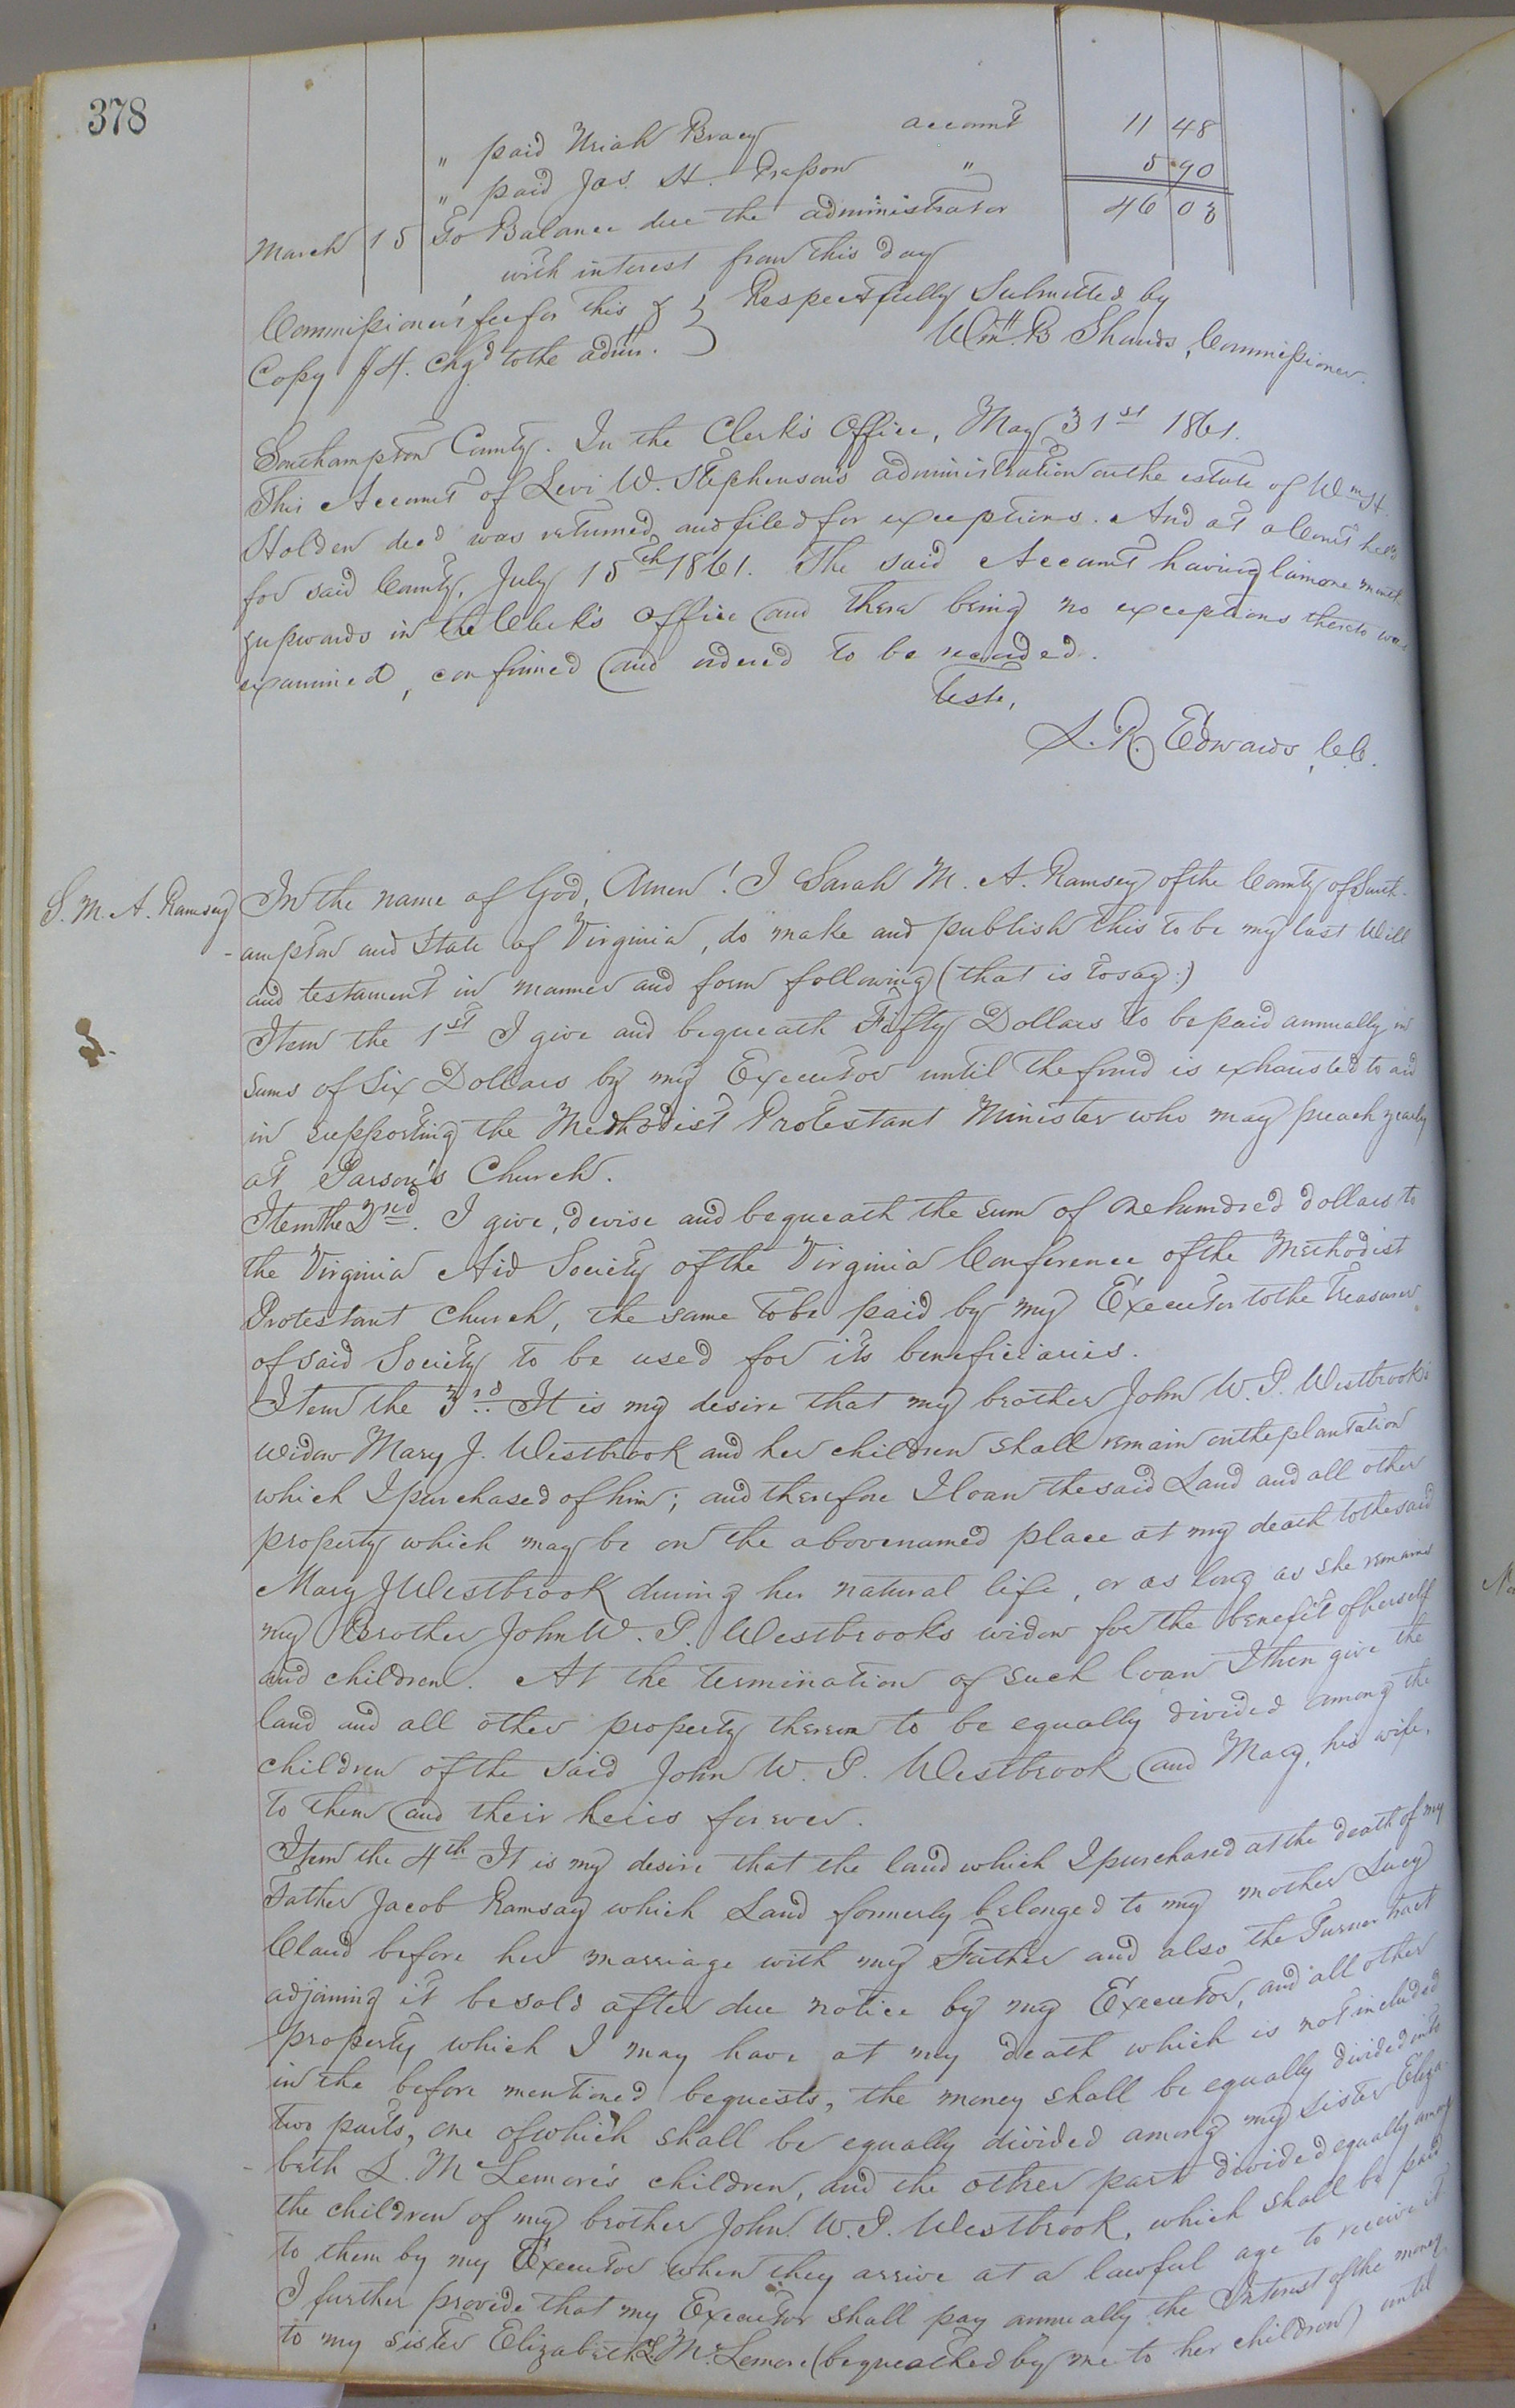 378
" paid Uriah Bracy account 11 48
" paid Jas. H. Presson " 5 90
March 15 To Balance due the administrator 46 03
with interest from this day
Commissioner's fee for this & } Respectfully Submitted by
Copy $4. chgd to the admr. } Wm. B Shands, Commissioner.
Southampton County. In the Clerk's Office, May 31st 1861.
This Account of Levi W. Stephenson's administration on the estate of Wm H.
Holden decd was returned and filed for exceptions. And at a Court held
for said County, July 15th 1861. The said Account having lain one month
& upwards in the Clerk's Office and there being no exceptions thereto was
examined, confirmed and ordered to be recorded.
Teste,
L. R. Edwards, C.C.
S. M. A. Ramsey
In the name of God, Amen! I Sarah M. A. Ramsey of the County of South-
-ampton and State of Virginia, do make and publish this to be my last Will
and testament in manner and form following (that is to say:)
Item the 1st I give and bequeath Fifty Dollars to be paid annually in
sums of Six Dollars by my Executor until the fund is exhausted to aid
in supporting the Methodist Protestant Minister who may preach yearly
at Parson's Church.
Item the 2nd. I give, devise and bequeath the sum of One hundred dollars to
the Virginia Aid Society of the Virginia Conference of the Methodist
Protestant Church, the same to be paid by my Executor to the Treasurer
of said Society to be used for its beneficiaries.
Item the 3rd. It is my desire that my brother John W. P. Westbrook's
widow Mary J. Westbrook and her children shall remain on the plantation
which I purchased of him; and therefore I loan the said Land and all other
property which may be on the abovenamed place at my death to the said
Mary J Westbrook during her natural life, or as long as she remains
my Brother John W. P. Westbrooks widow for the benefit of herself
and children. At the termination of such loan I then give the
land and all other property thereon to be equally divided among the
children of the said John W. P. Westbrook and Mary, his wife,
to them and their heirs forever.
Item the 4th It is my desire that the land which I purchased at the death of my
Father Jacob Ramsay which Land formerly belonged to my mother Lucy
Claud before her marriage with my Father and also the Turner tract
adjoining it be sold after due notice by my Executor, and all other
property which I may have at my death which is not included
in the before mentioned bequests, the money shall be equally divided into
two parts, one of which shall be equally divided among my sister Eliza-
-beth L. McLemore's children, and the other part divided equally among
the children of my brother John W. P. Westbrook, which shall be paid
to them by my Executor when they arrive at a lawful age to receive it.
I further provide that my Executor shall pay annually the Interest of the money
to my sister Elizabeth L. McLemore (bequeathed by me to her children) until